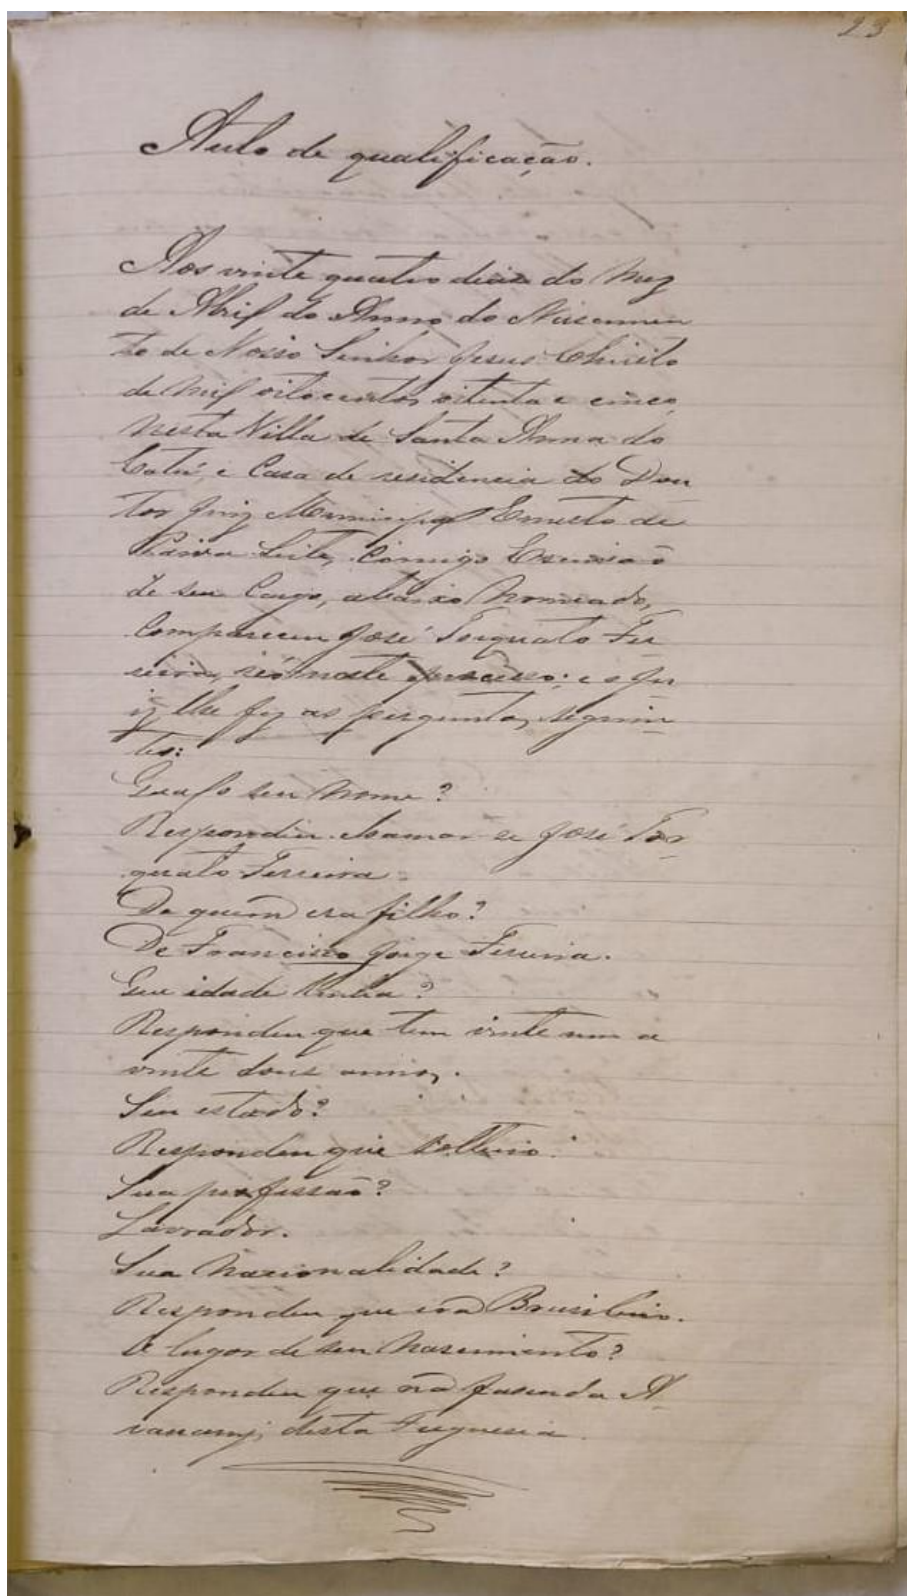 23
Auto de qualificação.
Aos vinte quatro dias do mez
de Abril do Anno do Nascimen
to de Nosso Senhor Jesus Christo
de mil oitocentos oitenta e cinco,
nesta Villa de Santa Anna do
Catú, e Casa de residencia do Dou
tor Juiz Municipal Ernesto de
Paiva Leite, Comigo Escrivão
de seu Cargo, abaixo nomeado,
Compareceu José Torquato Fer
reira, réo neste processo: e o Ju
iz lhe fez as perguntas seguin
tes:
Qual o seu nome?
Respondeu chamar-se José Tor
quato Ferreira.
De quem era filho?
De Francisco Jorge Ferreira.
Que idade tinha?
Respondeu que tem vinte um a
vinte dous annos.
Seu estado?
Respondeu que solteiro.
Sua profissão?
Lavrador.
Sua nacionalidade?
Respondeu que era Brasileiro.
O lugar de seu nascimento?
Respondeu que na fasenda
desta Freguesia.